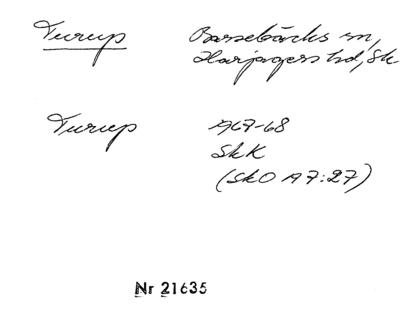 Turup Barsebäcks sn,
Harjagers hd, Sk
Turup 1767-68
SkK
(SkO A7:27)
Nr 21635